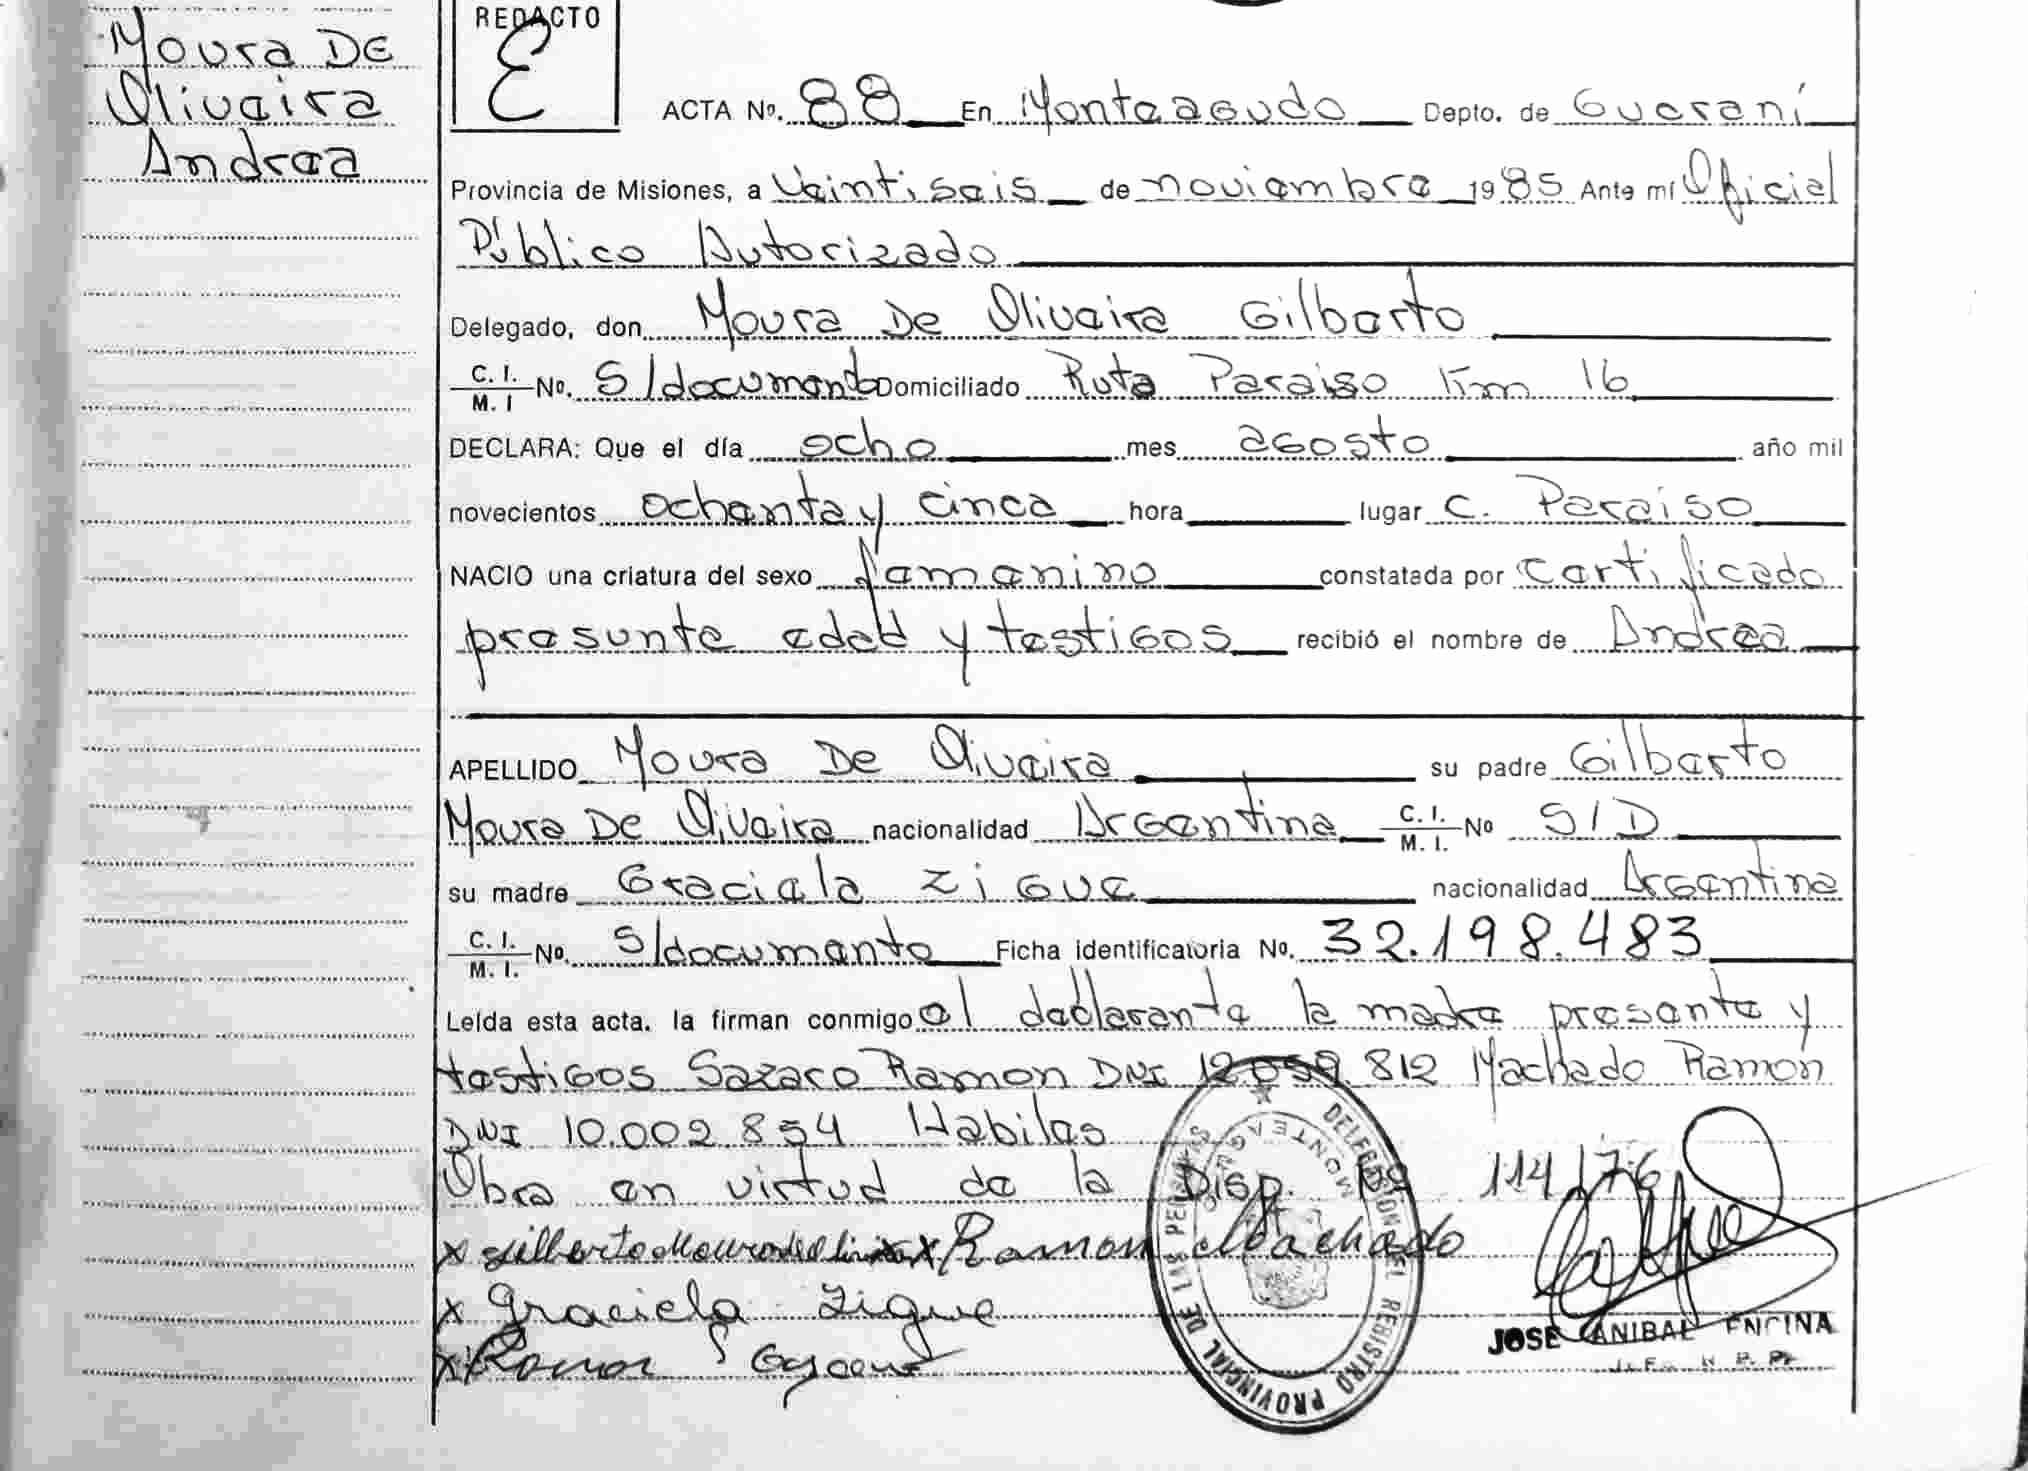 Moura De
Oliveira
Andrea
REDACTO
E
ACTA Nº. 88 En Monteagudo Depto. de Guaraní
Provincia de Misiones, a Veintiseis de noviembre 1985 Ante mí Oficial
Público Autorizado
Delegado, don Moura De Oliveira Gilberto
C. I. / M. I Nº. S/documento Domiciliado Ruta Paraiso Km 16
DECLARA: Que el día ocho mes agosto año mil
novecientos ochenta y cinco hora lugar C. Paraiso
NACIO una criatura del sexo femenino constatada por certificado
presunte edad y testigos recibió el nombre de Andrea
APELLIDO Moura De Oliveira su padre Gilberto
Moura De Oliveira nacionalidad Argentina C. I. / M. I. Nº S/D
su madre Graciela Zigue nacionalidad Argentina
C. I. / M. I. Nº. S/documento Ficha identificatoria Nº. 32.198.483
Leída esta acta. la firman conmigo el declarante la madre presente y
testigos Sazaro Ramon DNI 12.059.812 Machado Ramon
DNI 10.002.854 Habiles
Obra en virtud de la Disp. Nº 114/76
x Gilberto Moura de Oliveira x Ramon Machado
x Graciela Zigue
x Ramon
DELEGACION DEL REGISTRO PROVINCIAL DE LAS PERSONAS
MONTEAGUDO
JOSE ANIBAL ENCINA